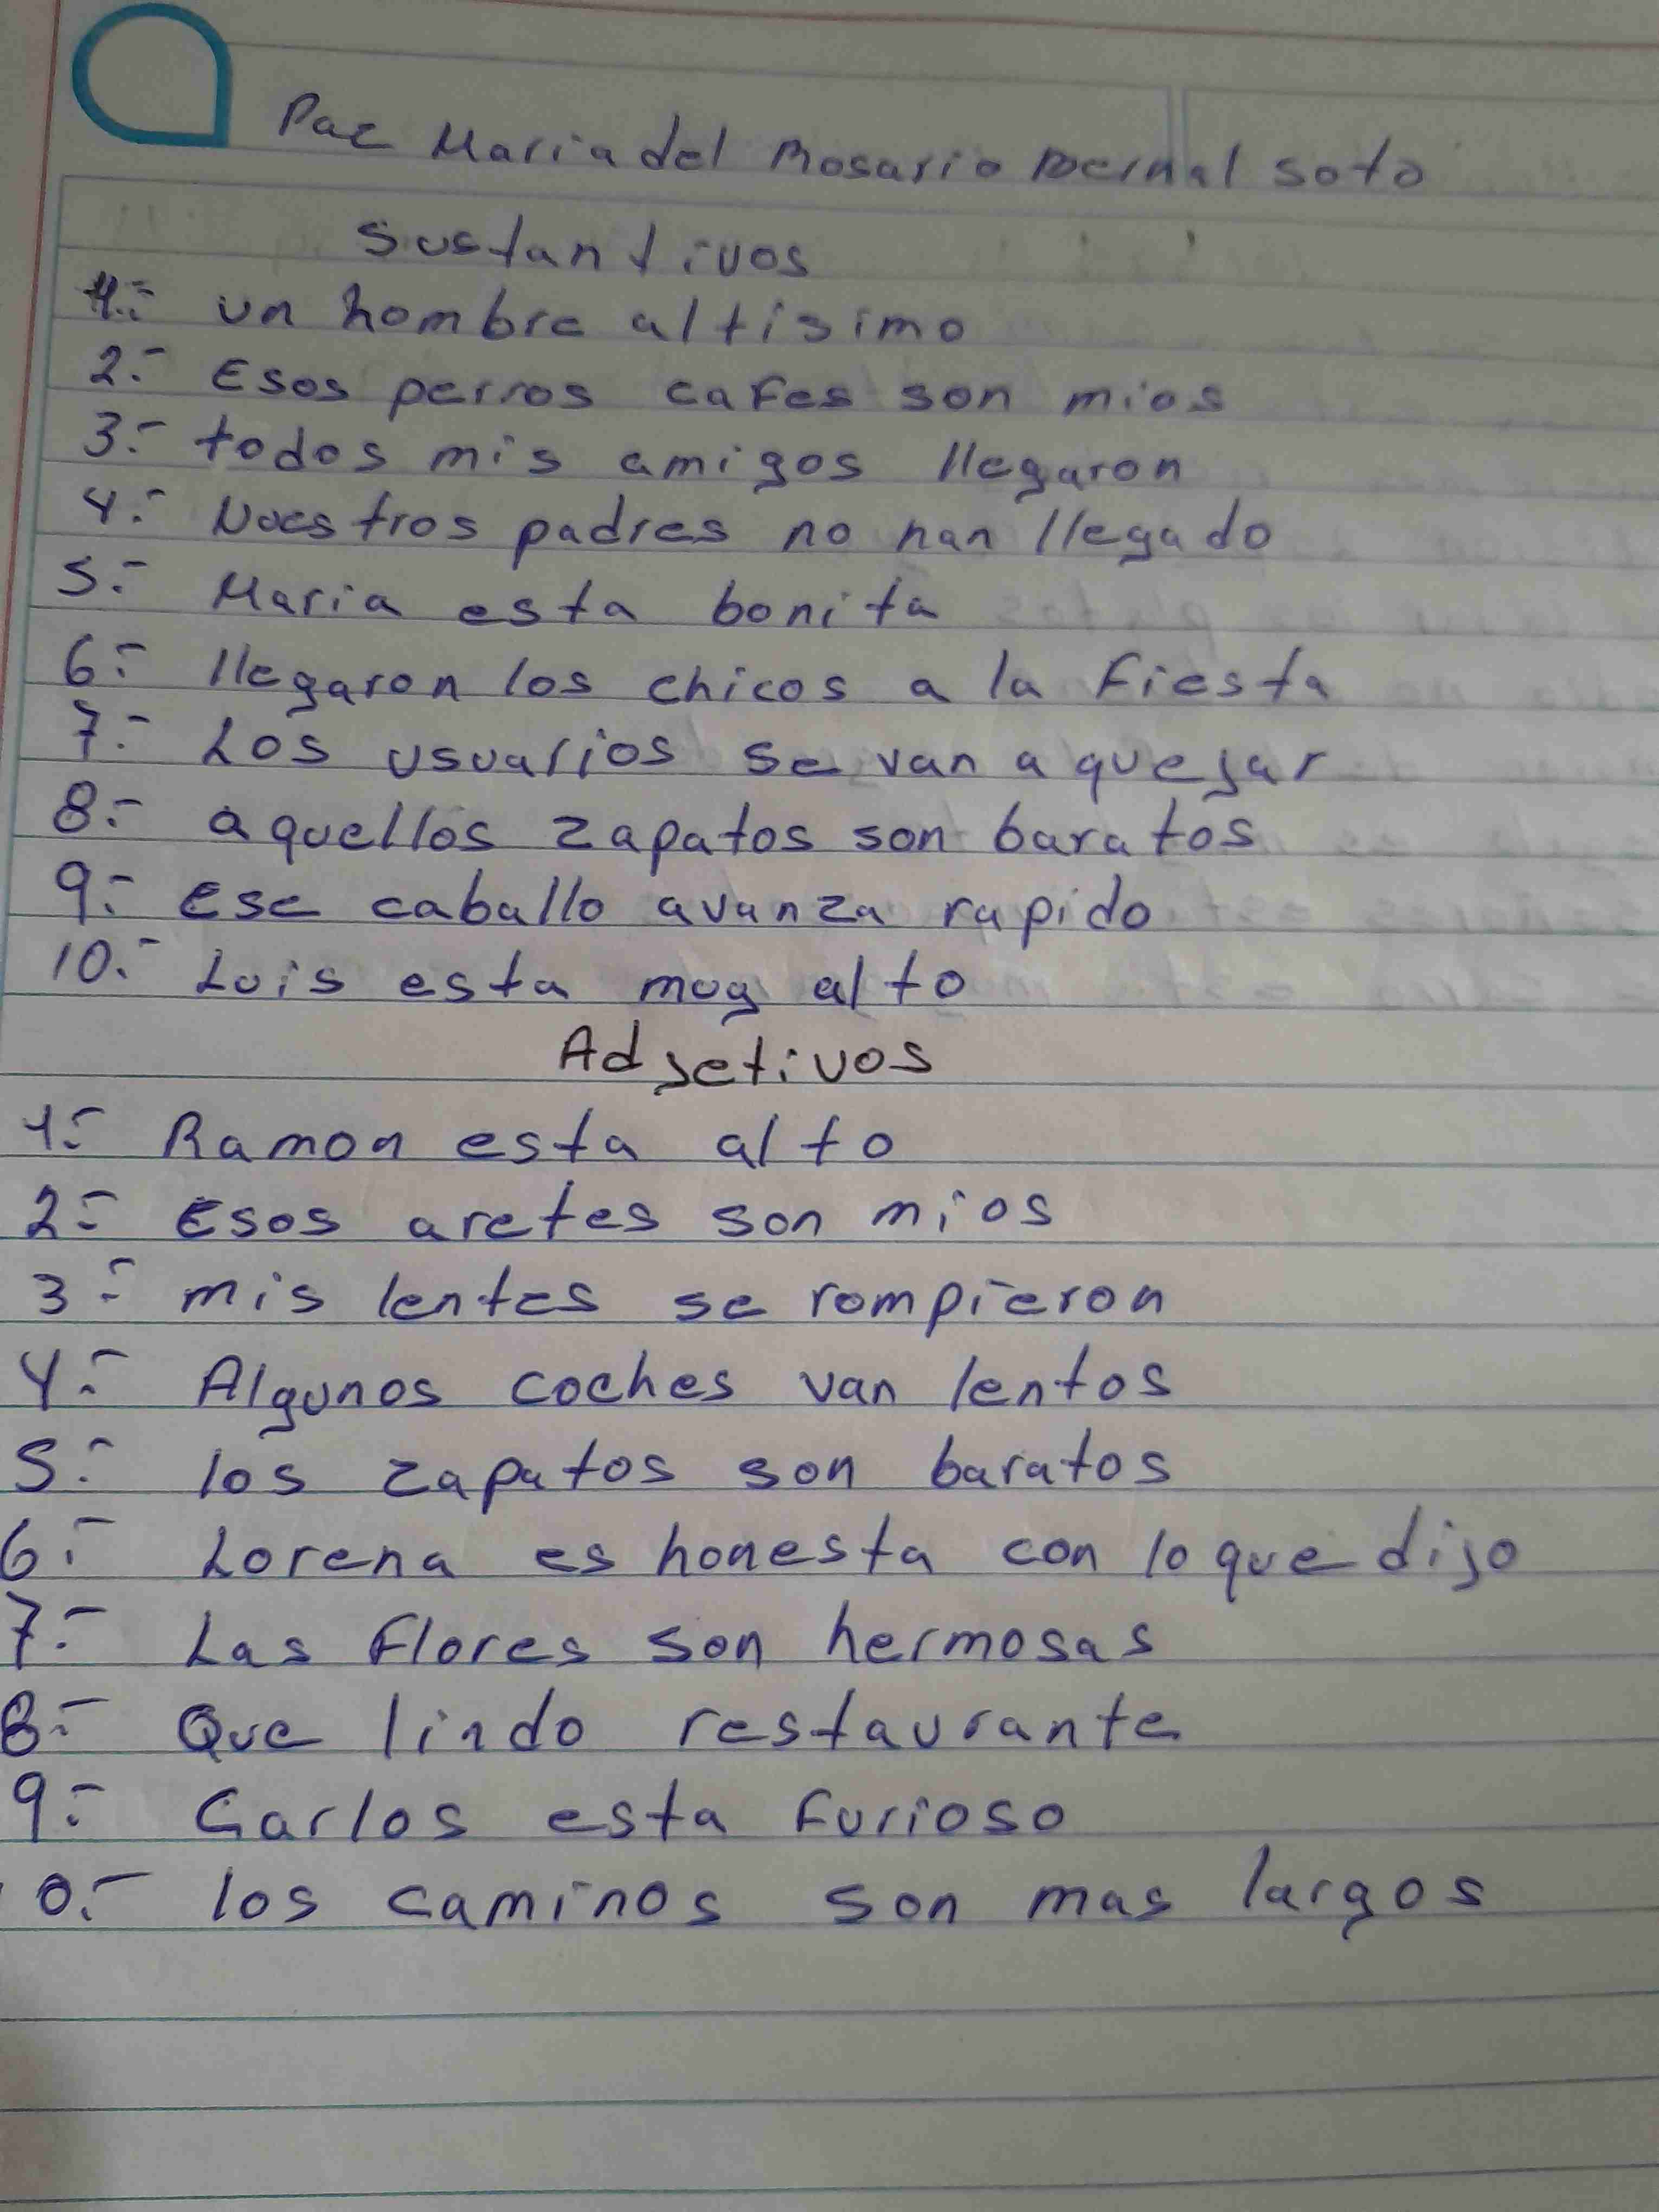 Paz Maria del Rosario Bernal Soto
Sustantivos
1.- un hombre altisimo
2.- Esos perros cafes son mios
3.- todos mis amigos llegaron
4.- Nuestros padres no han llegado
5.- Maria esta bonita
6.- llegaron los chicos a la fiesta
7.- Los usuarios se van a quejar
8.- aquellos zapatos son baratos
9.- Ese caballo avanza rapido
10.- Luis esta muy alto
Adjetivos
1.- Ramon esta alto
2.- Esos aretes son mios
3.- mis lentes se rompieron
4.- Algunos coches van lentos
5.- los zapatos son baratos
6.- Lorena es honesta con lo que dijo
7.- Las flores son hermosas
8.- Que lindo restaurante
9.- Carlos esta furioso
10.- los caminos son mas largos